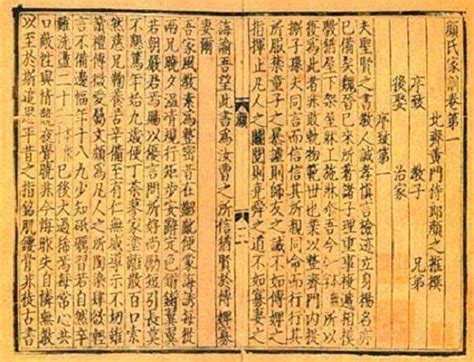 顏氏家訓卷第一
北齊黃門侍郎顏之推撰
序致 教子 兄弟
後娶 治家
序致第一
夫聖賢之書教人誠孝慎言檢迹立身揚名亦
已備矣魏晉已來所著諸子理重事複遞相模
斆猶屋下架屋牀上施牀爾吾今所以復
為此者非敢軌物範世也業以整齊門內提
撕子孫夫同言而信信其所親同命而行行其
所服禁童子之暴謔則師友之誡不如傅婢之
指揮止凡人之鬬鬩則堯舜之道不如寡妻之
誨諭吾望此書為汝曹之所信猶賢於傅婢寡
妻爾
吾家風教素為整密昔在齠齔便蒙誨誘每從
兩兄曉夕溫凊規行矩步安辭定色鏘鏘翼翼
若朝嚴君焉賜以優言問所好尚勵短引長莫
不懇篤年始九歲便丁荼蓼家塗離散百口索
然慈兄鞠養苦辛備至有仁無威導示不切雖
讀禮傳微愛屬文頗為凡人之所陶染肆欲輕
言不備邊幅年十八九少知砥礪習若自然卒
難洗盪二十已後大過稀焉每常心共
口敵性與情競夜覺曉非今悔昨失自憐無教
以至於斯追思平昔之指銘肌鏤骨非徒古書